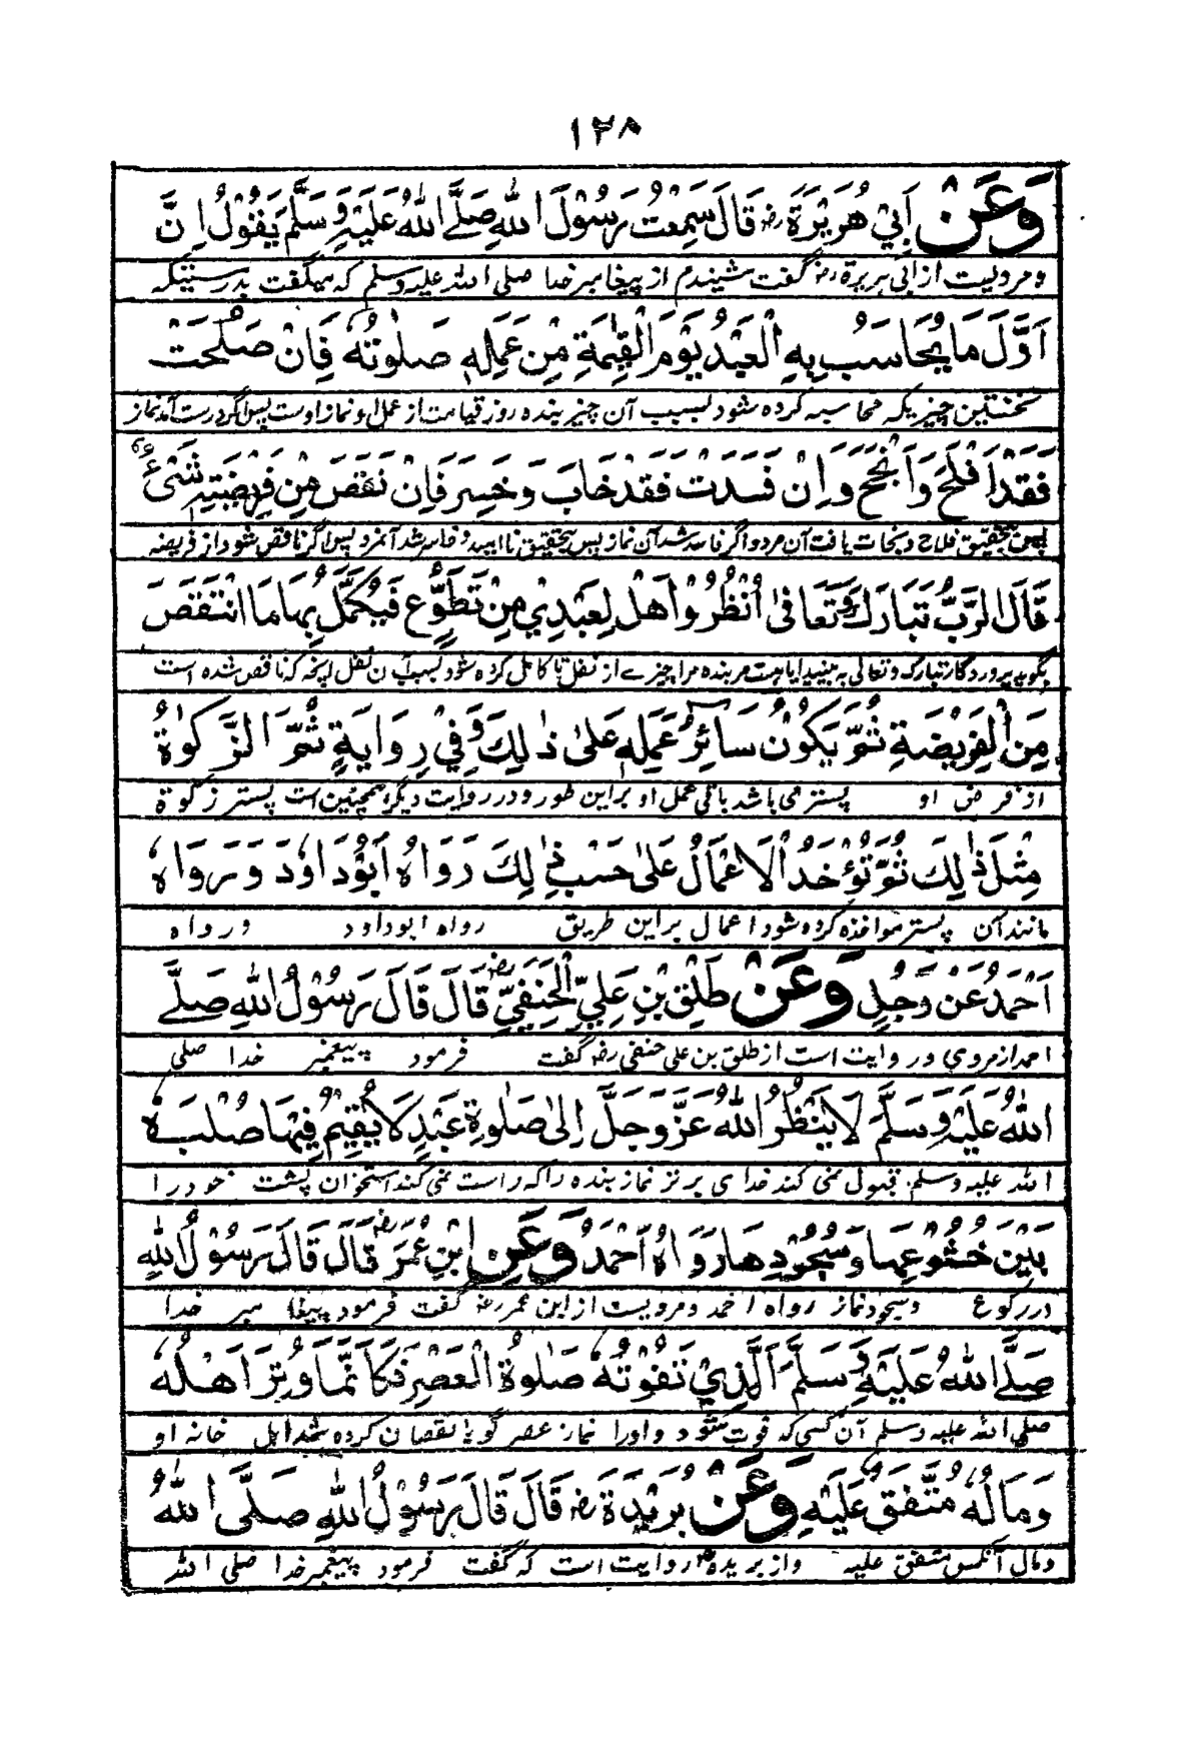 ١٢٨
وَعَنْ اَبِيْ هُرَيْرَةَ رض قَالَ سَمِعْتُ رَسُوْلَ اللهِ صَلَّے اللهُ عَلَيْهِ وَسَلَّمَ يَقُوْلُ اِنَّ
و مرویست از ابی هریرة رض گفت شنیدم از پیغامبر خدا صلی الله علیه وسلم که میگفت بدرستیکه
اَوَّلَ مَا يُحَاسَبُ بِهِ الْعَبْدُ يَوْمَ الْقِيٰمَةِ مِنْ عَمَلِهٖ صَلٰوتُهٗ فَاِنْ صَلُحَتْ
نخستین چیزیکه محاسبه کرده شود بسبب آن چیز بنده روز قیامت از عمل او نماز اوست پس اگر درست آمد نماز
فَقَدْ اَفْلَحَ وَاَنْجَحَ وَاِنْ فَسَدَتْ فَقَدْ خَابَ وَخَسِرَ فَاِنْ نَقَصَ مِنْ فَرِيْضَتِهٖ شَیْءٌ
پس بتحقیق فلاح و نجات یافت آن مرد و اگر فاسد شد آن نماز پس بتحقیق ناامید و خاسر شد آنمرد پس اگر ناقص شود از فریضه
قَالَ الرَّبُّ تَبَارَكَ وَتَعَالٰی اُنْظُرُوْا هَلْ لِعَبْدِيْ مِنْ تَطَوُّعٍ فَيُكَمَّلُ بِهَا مَا انْتَقَصَ
بگوید پروردگار تبارک و تعالی به بینید ایا هست مر بنده مرا چیزے از نفل تا کامل کرده شود بسبب آن نفل انچه که ناقص شده است
مِنَ الْفَرِيْضَةِ ثُمَّ يَكُوْنُ سَائِرُ عَمَلِهٖ عَلٰی ذٰلِكَ وَفِيْ رِوَايَةٍ ثُمَّ الزَّكٰوةُ
از فرض او پستر می باشد باقی عمل او براین طور و در روایت دیگر همچنین است پستر زکوة
مِثْلَ ذٰلِكَ ثُمَّ تُؤْخَذُ الْاَعْمَالُ عَلٰی حَسْبِ ذٰلِكَ رَوَاهُ اَبُوْدَاوٗدَ وَرَوَاهُ
مانند آن پستر مواخذه کرده شود اعمال براین طریق رواه ابوداود ورواه
اَحْمَدُ عَنْ رَجُلٍ وَعَنْ طَلْقِ بْنِ عَلِيِّ الْحَنَفِيِّ رض قَالَ قَالَ رَسُوْلُ اللهِ صَلَّے
احمد از مردی و روایت است از طلق بن علی حنفی رض گفت فرمود پیغمبر خدا صلی
اللهُ عَلَيْهِ وَسَلَّمَ لَا يَنْظُرُ اللهُ عَزَّ وَجَلَّ اِلٰی صَلٰوةِ عَبْدٍ لَا يُقِيْمُ فِيْهَا صُلْبَهٗ
الله علیه وسلم قبول نمی کند خدای برتر نماز بنده را که راست نمی کند استخوان پشت خود را
بَيْنَ خُشُوْعِهَا وَسُجُوْدِهَا رَوَاهُ اَحْمَدُ وَعَنِ ابْنِ عُمَرَ رض قَالَ قَالَ رَسُوْلُ اللهِ
در رکوع و سجود نماز رواه احمد و مرویست از ابن عمر رض گفت فرمود پیغامبر خدا
صَلَّے اللهُ عَلَيْهِ وَسَلَّمَ اَلَّذِيْ تَفُوْتُهٗ صَلٰوةُ الْعَصْرِ فَكَاَنَّمَا وُتِرَ اَهْلُهٗ
صلی الله علیه وسلم آن کسی که فوت شود و اورا نماز عصر گویا نقصان کرده شد اهل خانه او
وَمَالُهٗ مُتَّفَقٌ عَلَيْهِ وَعَنْ بُرَيْدَةَ رض قَالَ قَالَ رَسُوْلُ اللهِ صَلَّی اللهُ
ومال آنکس متفق علیه واز بریده رض روایت است که گفت فرمود پیغمبر خدا صلی الله